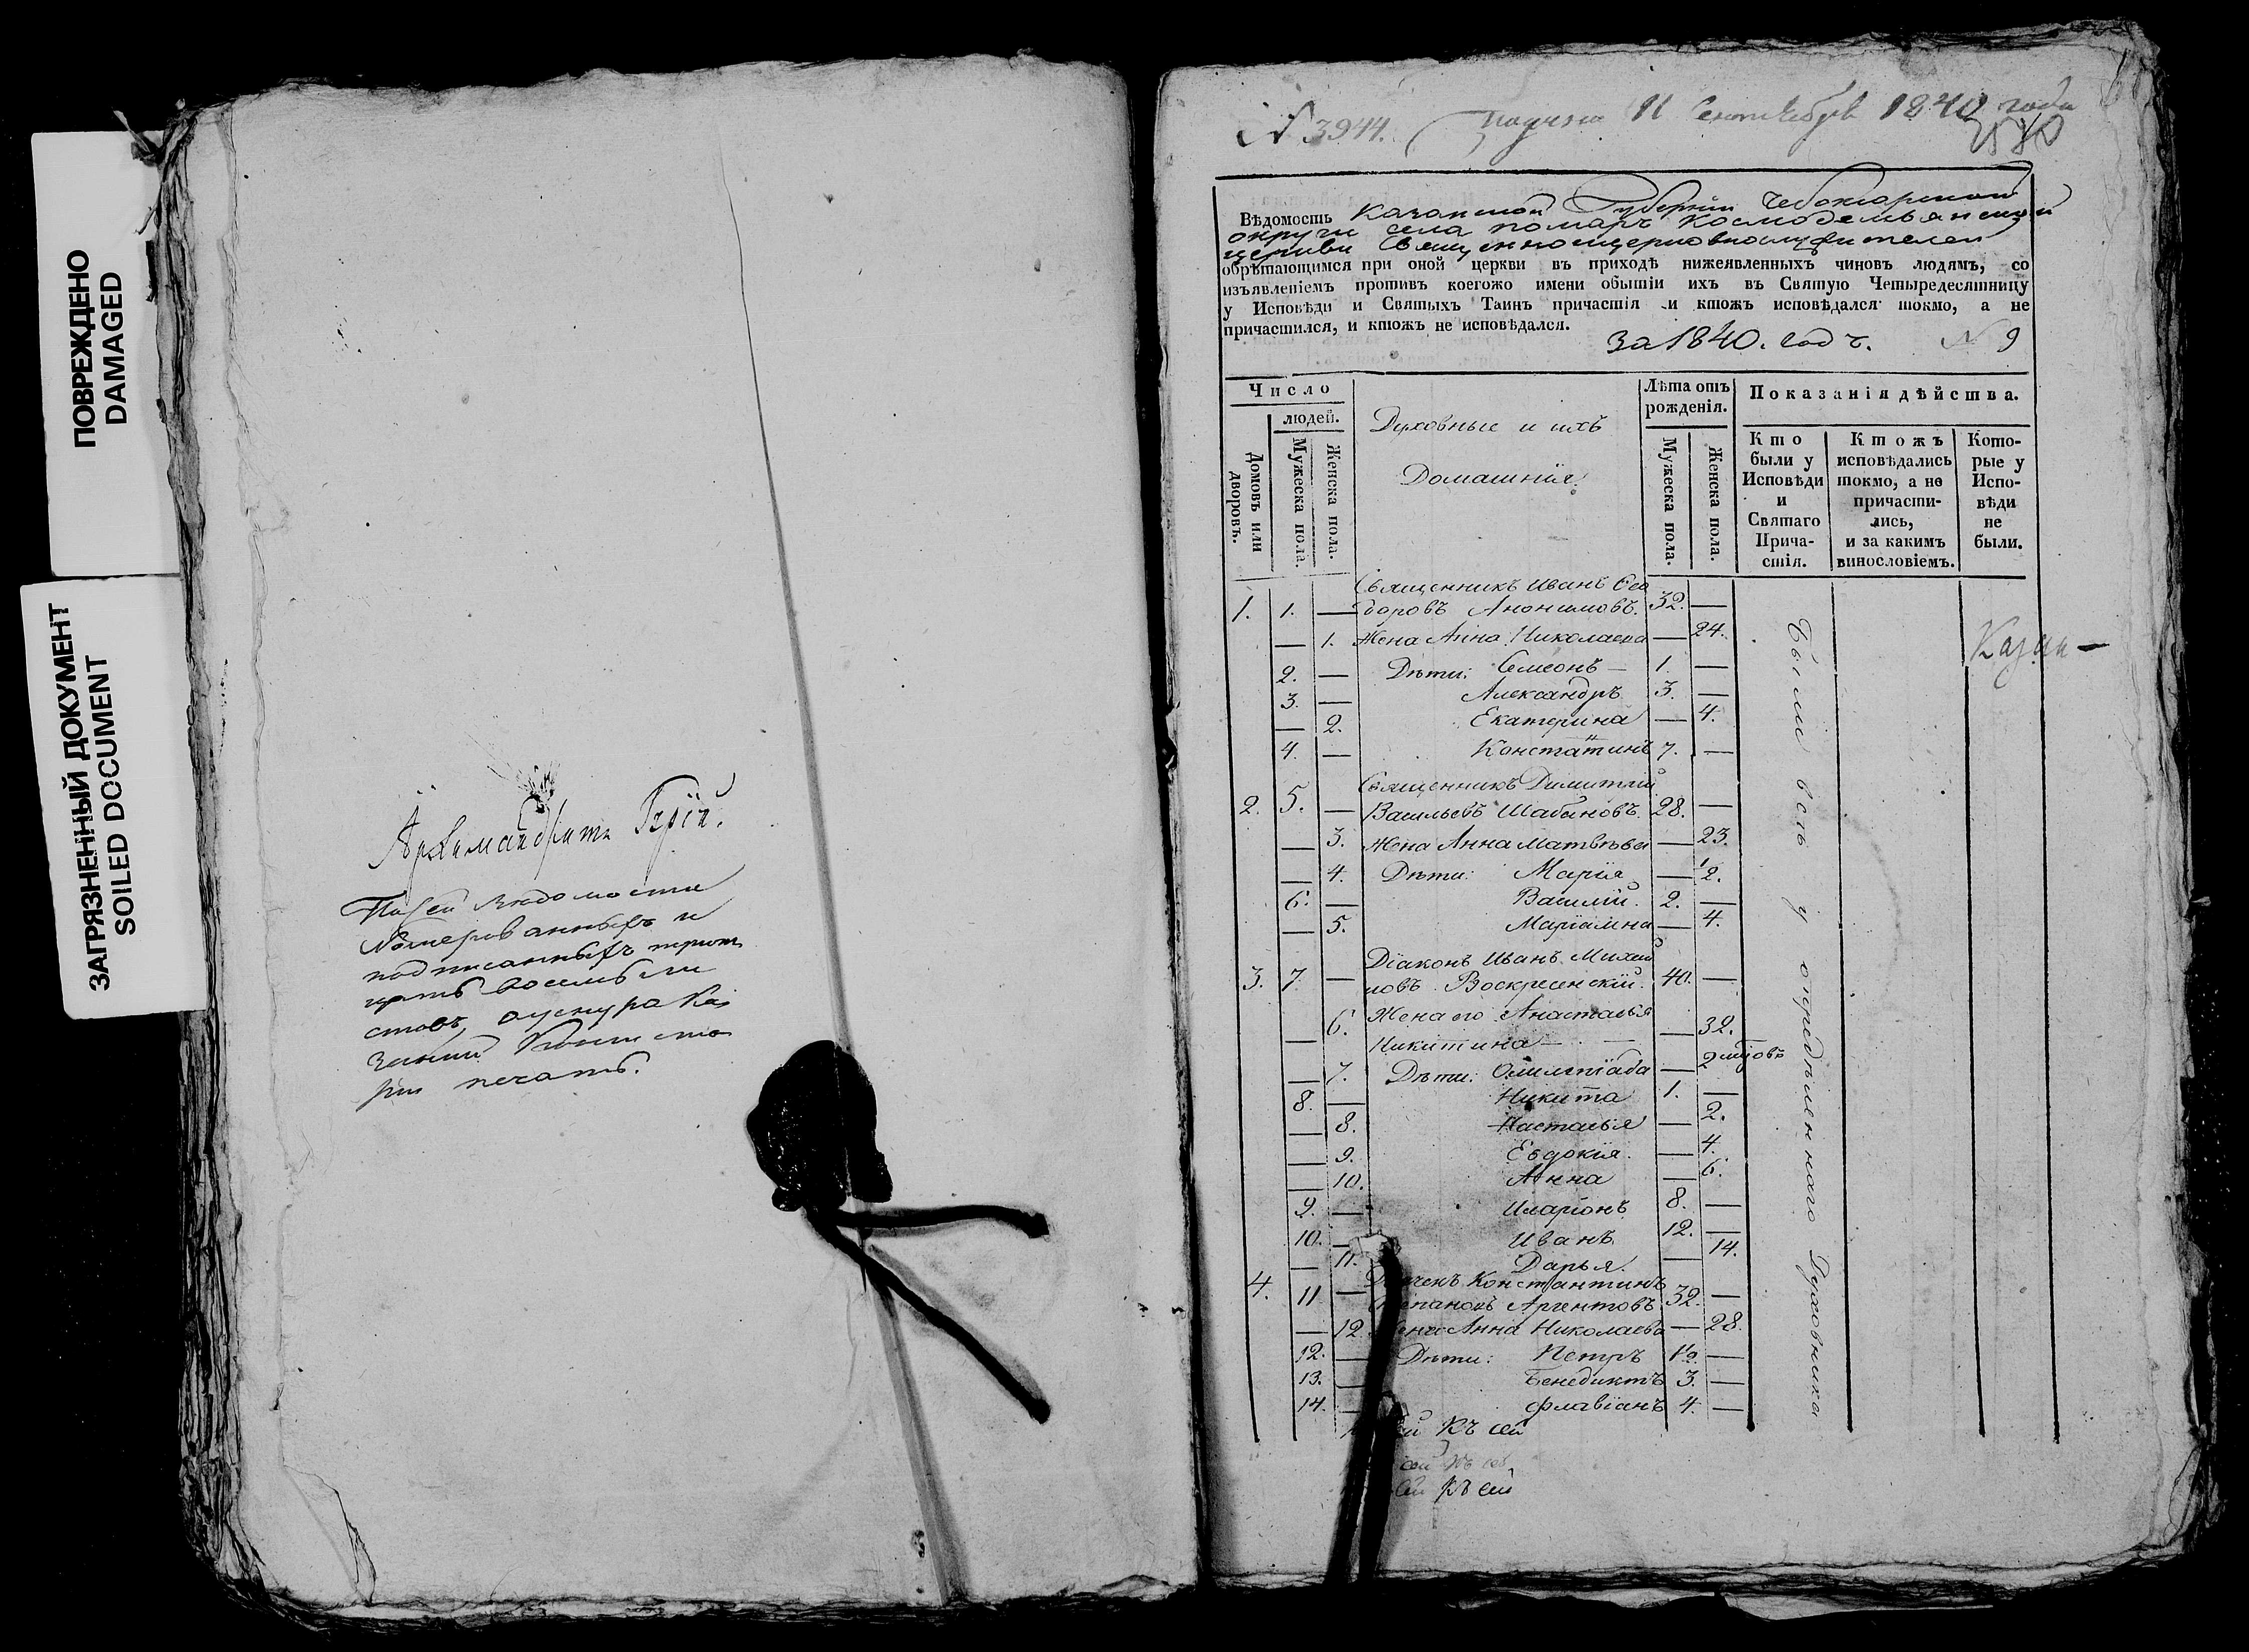 ПОВРЕЖДЕНО
DAMAGED
ЗАГРЯЗНЕННЫЙ ДОКУМЕНТ
SOILED DOCUMENT
Архимандритъ
ведомости
номерованныхъ и
подписанныхъ
восемь
стовъ,
печать.
N 3944. 11 Сентября 1840 года
Вѣдомость Казанской Губернiи Чебоксарской
округи села Помаръ Космодемьянской
церкви Священноцерковнослужителей
обрѣтающимся при оной церкви въ приходѣ нижеявленныхъ чиновъ людямъ, со
изъявленiемъ противъ коегожо имени бытiи ихъ въ Святую Четыредесятницу
у Исповѣди и Святыхъ Таинъ причастiя и ктожъ исповѣдался токмо, а не
причастился, и ктожъ не исповѣдался.
за 1840. годъ. N 9
Число
людей.
Домовъ или дворовъ.
Мужеска пола.
Женска пола.
Духовные и ихъ
Домашнiе.
Лѣта отъ рожденiя.
Мужеска пола.
Женска пола.
Показанiя дѣйства.
Кто были у Исповѣди и Святаго Прича-стiя.
Ктожъ исповѣдались токмо, а не причасти-лись, и за какимъ винословiемъ.
Кото-рые у Испо-вѣди не были.
Священникъ Иванъ Ѳео
1. 1. — доровъ Анонимовъ. 32. —
— 1. Жена Анна Николаева — 24.
2. — Дѣти: Симеонъ — 1. —
3. — Александръ 3. —
— 2. Екатерина — 4.
4. — Константинъ 7. —
Священникъ Димитрiй
2. 5. — Васильевъ Шабановъ. 28. —
— 3. Жена Анна Матвѣева — 23.
— 4. Дѣти: Марiя — 1/2.
6. — Василiй. 2. —
— 5. Марiамна — 4.
Дiаконъ Иванъ Михай
3. 7. — ловъ Воскресенскiй. 40. —
6. Жена его Анастасья 32.
— Никитина — —
— 7. Дѣти: Олимпiада — 2
8. — Никита 1. —
— 8. Настасья — 2.
— 9. Евдокiя. — 4.
— 10. Анна — 6.
9. — Иларiонъ 8. —
10. — Иванъ 12. —
— 11. Дарья. — 14.
Константинъ
4. 11 — Аргентовъ 32. —
— 12 Анна Николаева — 28.
12. — Дѣти: Петръ 1/2. —
13. — Бенедиктъ 3. —
14. — Флавiанъ 4. —
Были всѣ у опредѣленнаго Духовника
къ сей
къ сей